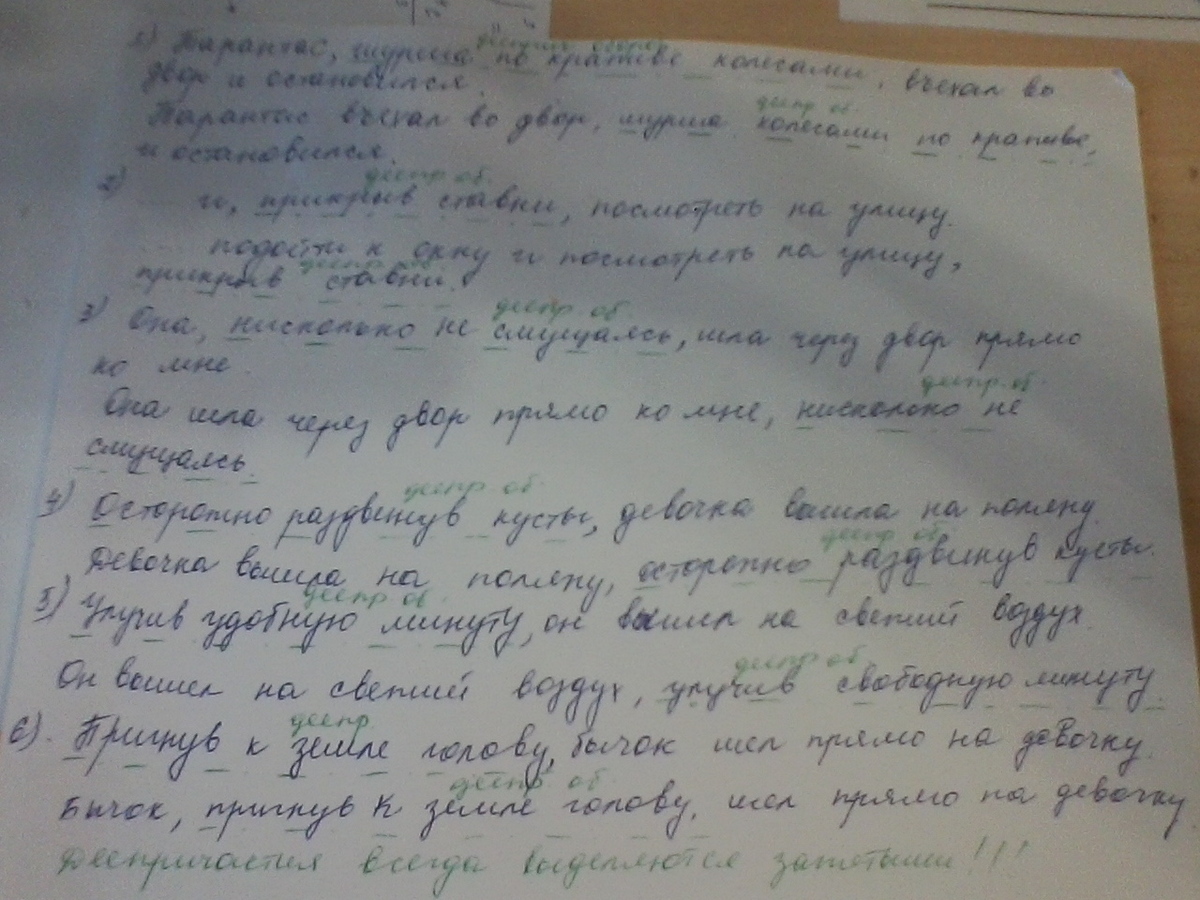 дееприч. оборот
1) Тарантас, шурша по крапиве колесами, въехал во
двор и остановился.
деепр об.
Тарантас въехал во двор, шурша колесами по крапиве,
и остановился.
деепр об.
2) и, прикрыв ставни, посмотреть на улицу.
подойти к окну и посмотреть на улицу,
деепр об
прикрыв ставни.
деепр об.
3) Она, нисколько не смущаясь, шла через двор прямо
ко мне.
деепр. об.
Она шла через двор прямо ко мне, нисколько не
смущаясь.
деепр об.
4) Осторожно раздвинув кусты, девочка вышла на поляну.
деепр об.
Девочка вышла на поляну, осторожно раздвинув кусты.
деепр об.
5) Улучив удобную минуту, он вышел на свежий воздух.
деепр об
Он вышел на свежий воздух, улучив свободную минуту.
деепр.
6). Пригнув к земле голову, бычок шел прямо на девочку.
деепр об.
Бычок, пригнув к земле голову, шел прямо на девочку.
Деепричастия всегда выделяются запятыми!!!